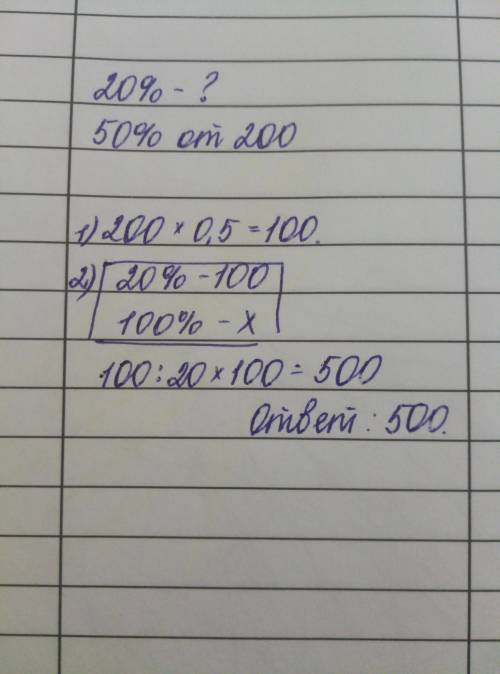 20% - ?
50% от 200
1) 200 × 0,5 = 100.
2) 20% - 100
100% - x
100 : 20 × 100 = 500
Ответ : 500.